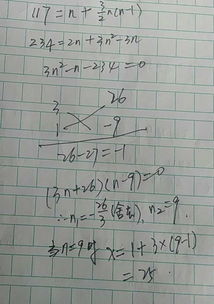 117=n+3/2n(n-1)
234=2n+3n²-3n
3n²-n-234=0
3 26
1 -9
26-27=-1
(3n+26)(n-9)=0
∴n₁=-26/3(舍去), n₂=9.
当n=9时 x=1+3×(9-1)
=25.